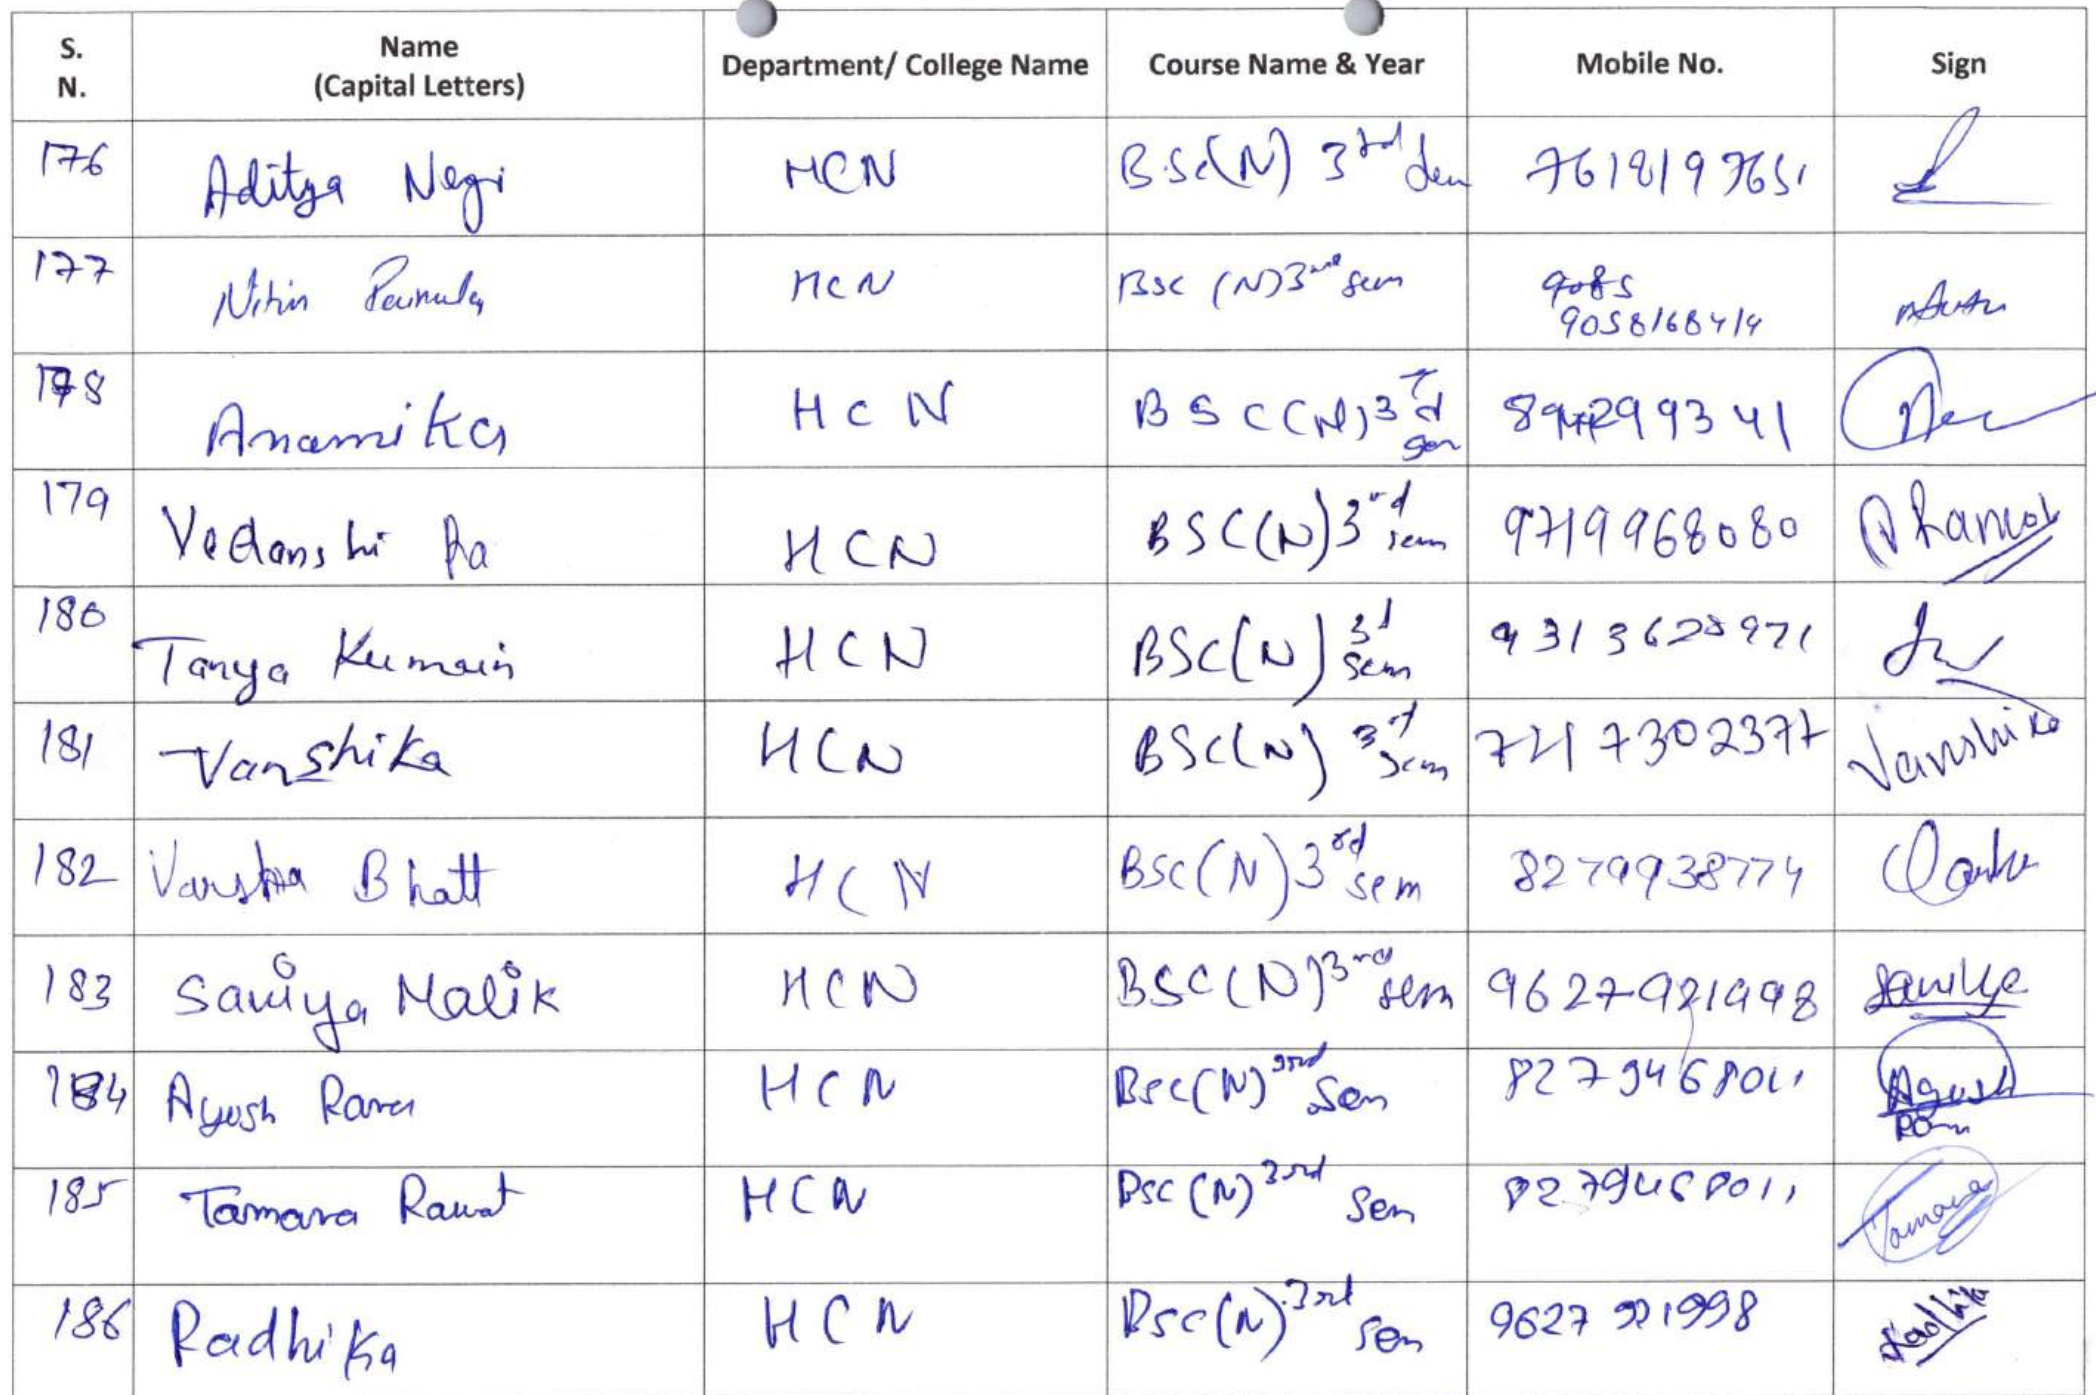 S. N. Name (Capital Letters) Department/ College Name Course Name & Year Mobile No. Sign
176 Aditya Negi HCN B.Sc(N) 3rd Sem
177 Nitin HCN Bsc (N) 3rd sem 9085 9058168414
178 Anamika HCN BSC(N) 3rd sem
179 Vedanshi HCN BSC(N) 3rd sem 9719968080
180 Tanya HCN BSC(N) 3d sem
181 Vanshika HCN BSC(N) 3rd sem Vanshika
182 Varsha Bhatt HCN BSC(N) 3rd sem 8279938774
183 Saniya Malik HCN BSC(N) 3rd sem 9627921998
184 Ayush Rana HCN Bsc(N) 3rd Sem 8279468011 Ayush
185 Tamara Rawat HCN Bsc (N) 3rd Sem 8279468011 Tamara
186 Radhika HCN Bsc(N) 3rd Sem 9627921998 Radhika